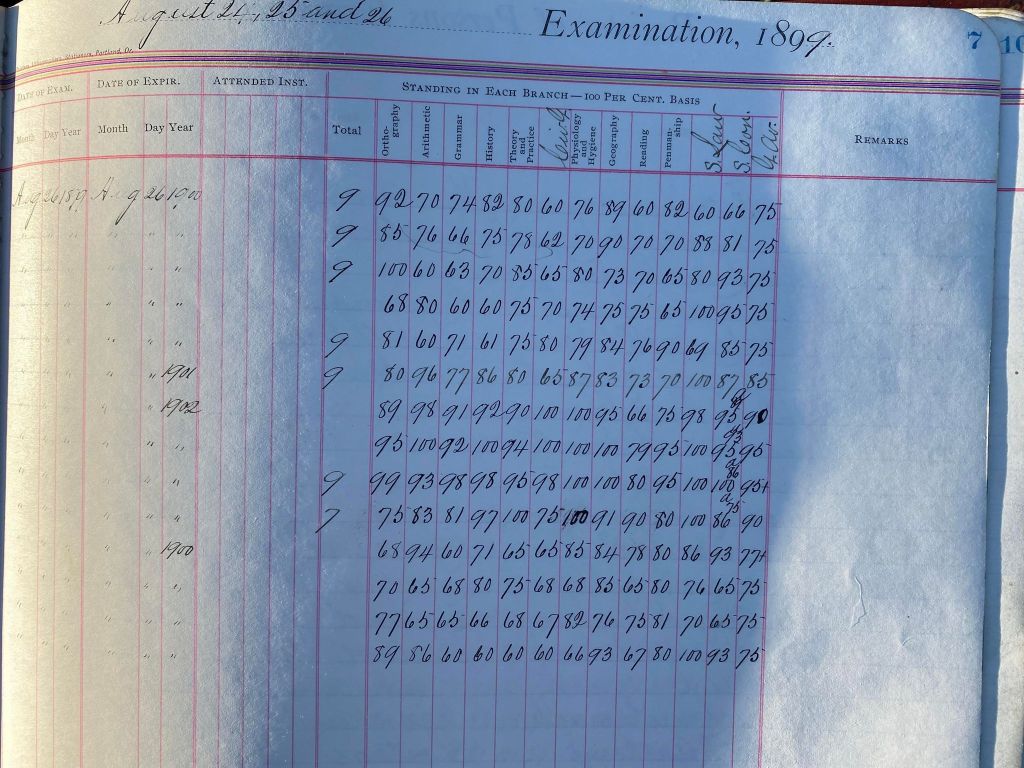 August 24, 25 and 26 Examination, 1899. 7 10
Stationers, Portland, Or.
DATE OF EXAM. DATE OF EXPIR. ATTENDED INST. STANDING IN EACH BRANCH—100 PER CENT. BASIS
Month Day Year Month Day Year Total Orthography Arithmetic Grammar History Theory and Practice Civil G Physiology and Hygiene Geography Reading Penmanship S. Law S. Con. G. Av. REMARKS
Aug 26 1899 Aug 26 1900 9 92 70 74 82 80 60 76 89 60 82 60 66 75
" " " " " 9 85 76 66 75 78 62 70 90 70 70 88 81 75
" " " " " 9 100 60 63 70 85 65 80 73 70 65 80 93 75
" " " " " 68 80 60 60 75 70 74 75 75 65 100 95 75
" " " " " 9 81 60 71 61 75 80 79 84 76 90 69 85 75
" " " " 1901 9 80 96 77 86 80 65 87 83 73 70 100 87 85
" " " " 1902 89 98 91 92 90 100 100 95 66 75 98 95 90
" " " " " 95 100 92 100 94 100 100 100 79 95 100 95 95
" " " " " 9 99 93 98 98 95 98 100 100 80 95 100 100 95+
" " " " " 7 75 83 81 97 100 75 100 91 90 80 100 86 90
" " " " 1900 68 94 60 71 65 65 85 84 78 80 86 93 77+
" " " " " 70 65 68 80 75 68 68 85 65 80 76 65 75
" " " " " 77 65 65 66 68 67 82 76 75 81 70 65 75
" " " " " 89 86 60 60 60 60 66 93 67 80 100 93 75